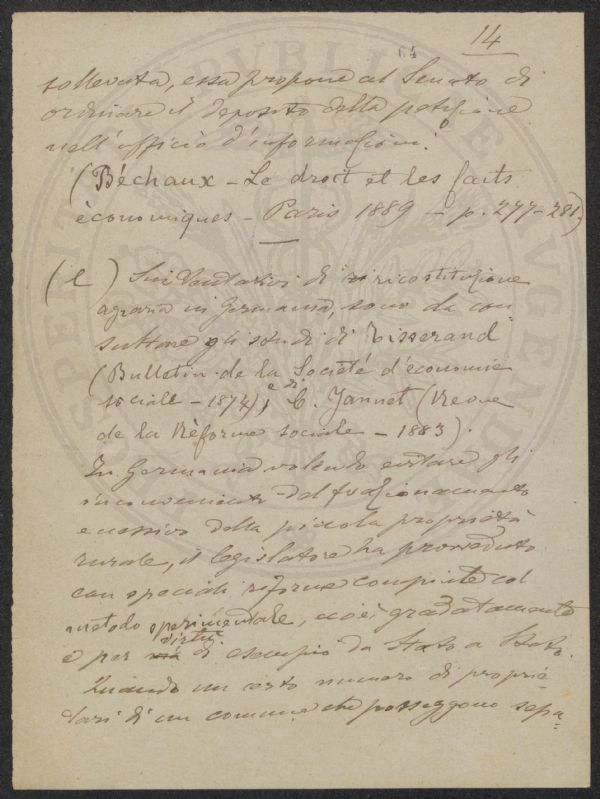 64 14
sollevata, essa propone al Senato di
ordinare il deposito della petizione
nell'officio d'informazioni.
(Béchaux - Le droit et les faits
économiques - Paris 1889 - p. 277-281)
(e) Sui tentativi di ricostituzione
agraria in Germania, sono da con
sultare gli studi di Tisserand
(Bulletin de la Société d'économie
sociale - 1874), e di C. Jannet (Revue
de la Réforme sociale - 1883).
In Germania volendo evitare gli
inconvenienti del frazionamento
eccessivo della piccola proprietà
rurale, il legislatore ha provveduto
con speciali riforme compiute col
metodo sperimentale, cioè gradatamente
e per virtù di esempio da Stato a Stato.
Quando un certo numero di proprie-
tari di un comune che posseggono sepa=